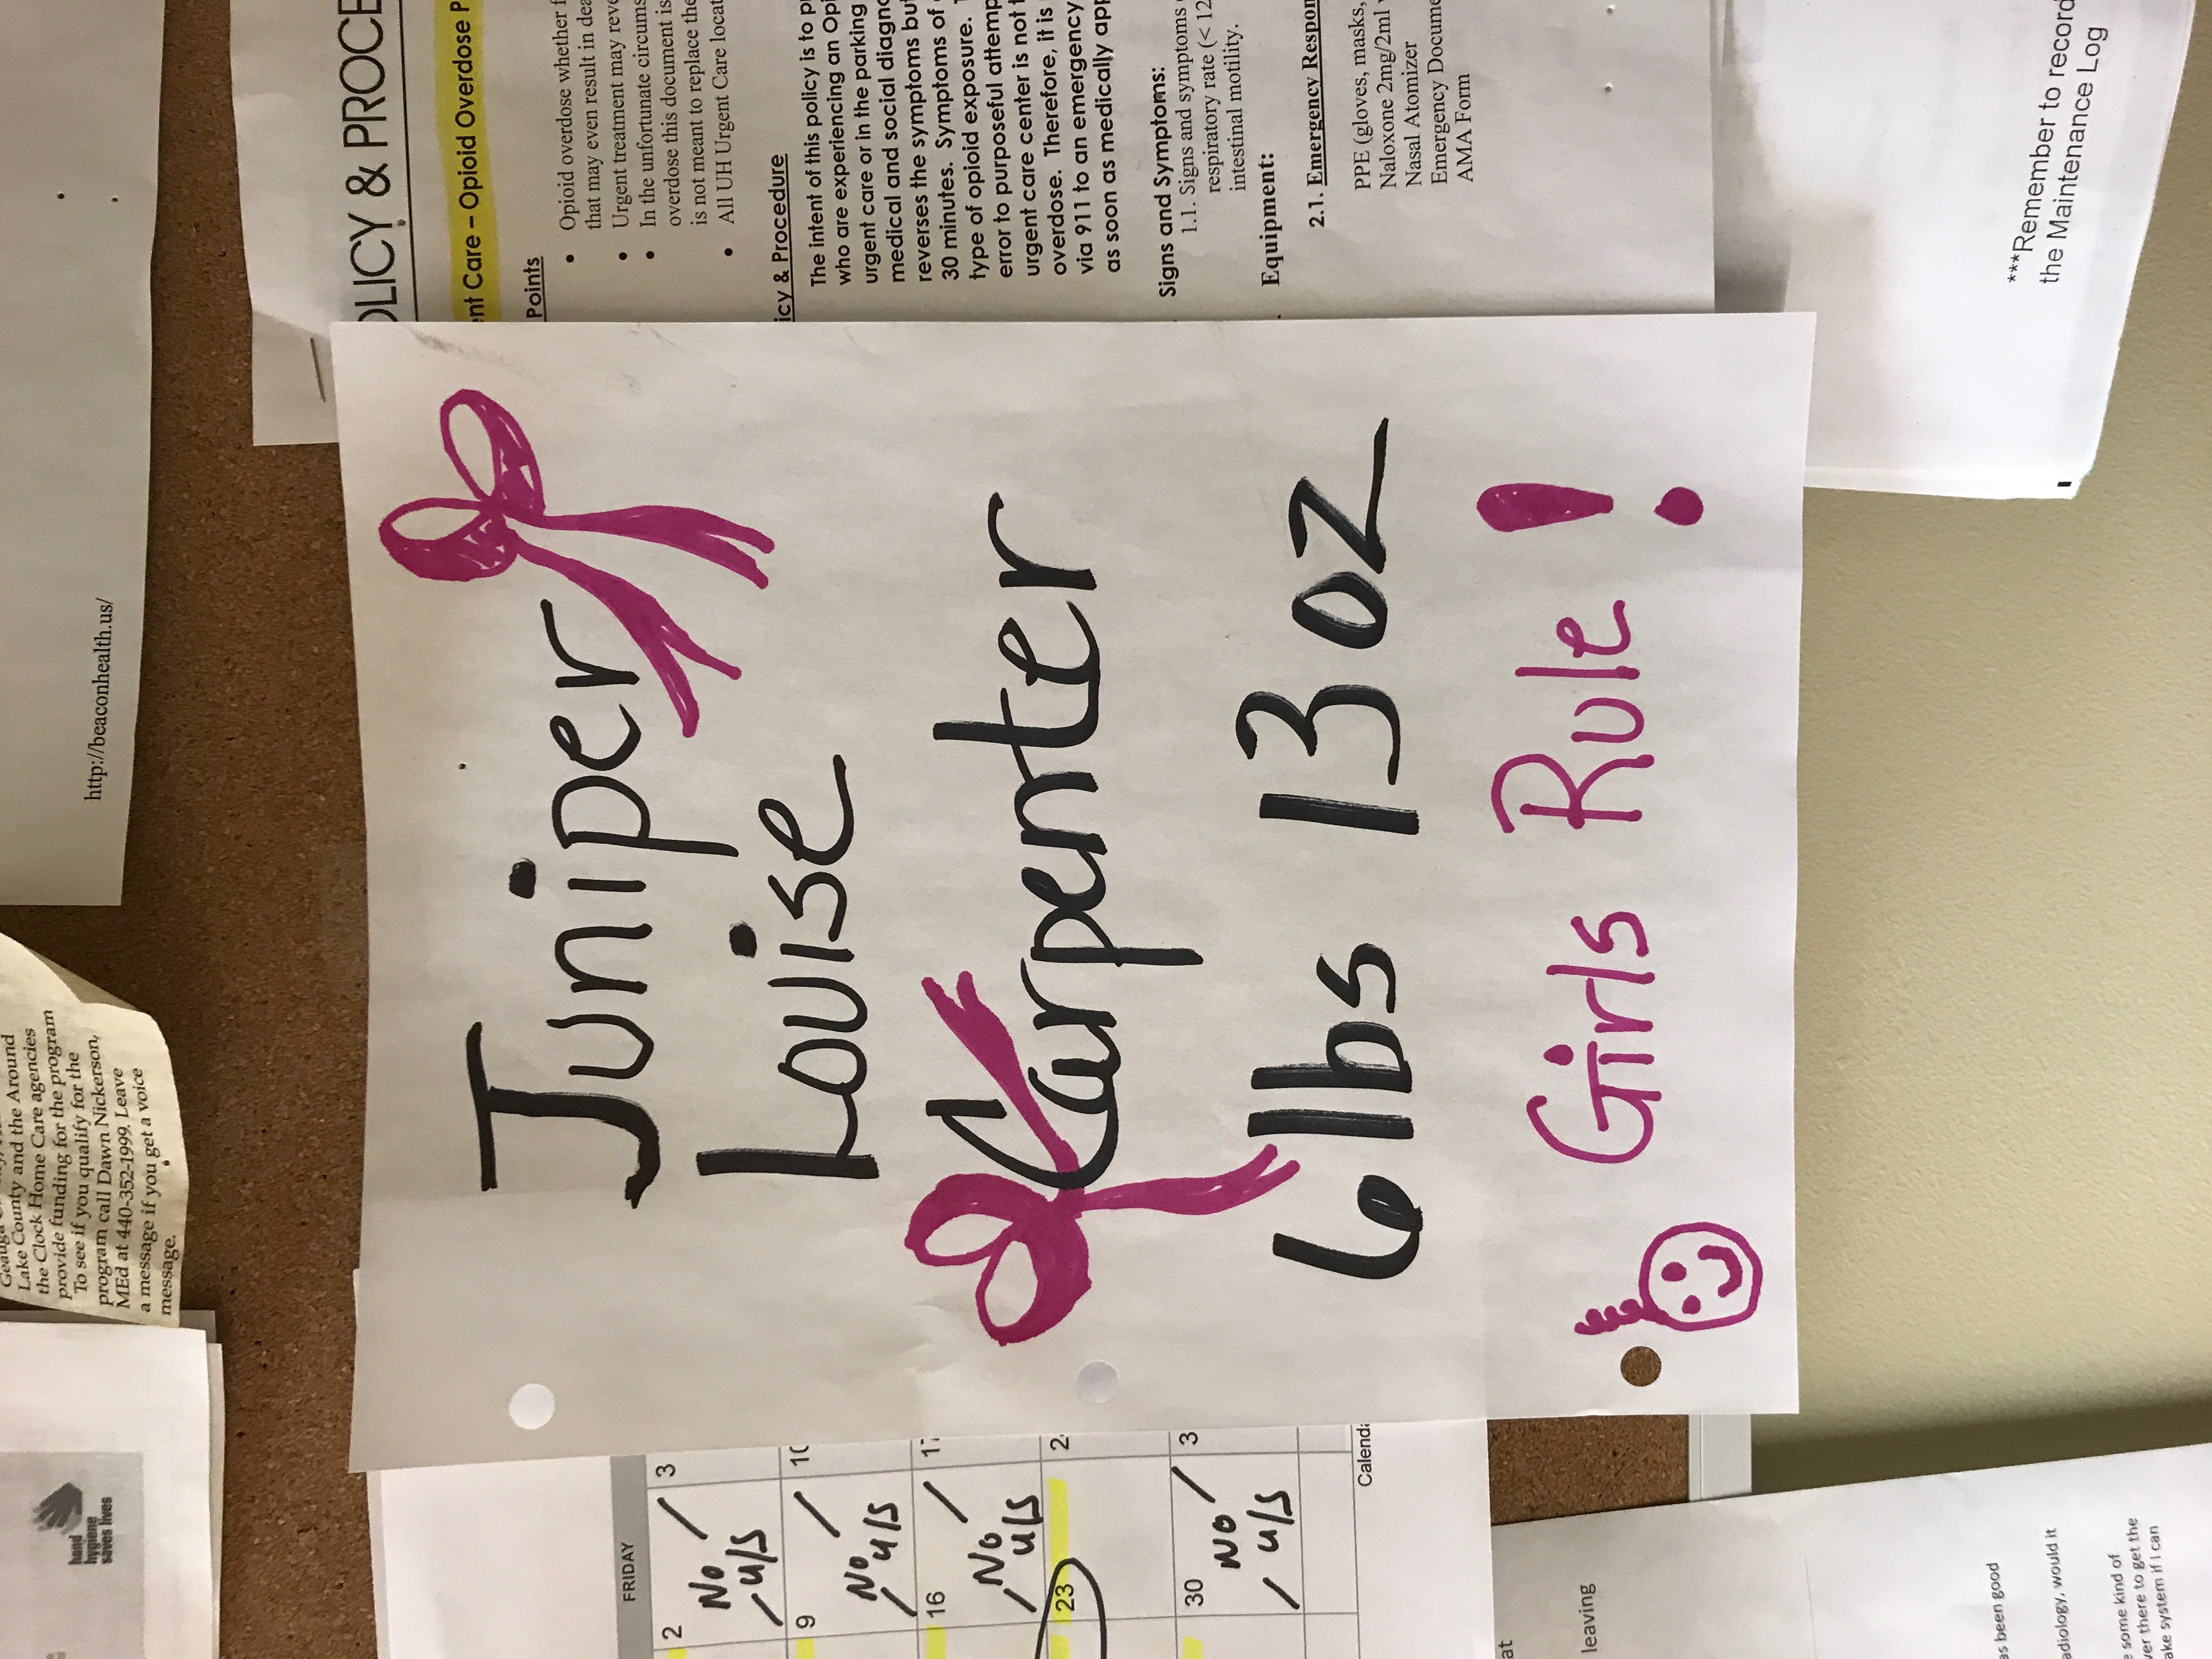 hand
hygiene
saves lives
Lake County and the Around
the Clock Home Care agencies
provide funding for the program
To see if you qualify for the
program call Dawn Nickerson,
MEd at 440-352-1999. Leave
a message if you get a voice
message.
http://beaconhealth.us/
FRIDAY
2
3
No
u/s
9
10
No
u/s
16
17
No
u/s
23
30
No
u/s
Juniper
Louise
Carpenter
6 lbs 13 oz
Girls Rule!
& PROCE
Care – Opioid Overdose P
Points
• Opioid overdose whether
that may even result in
• Urgent treatment may
• In the unfortunate
overdose this document is
is not meant to replace the
• All UH Urgent Care
& Procedure
The intent of this policy is to
who are experiencing an
urgent care or in the parking
medical and social
reverses the symptoms but
30 minutes. Symptoms of
type of opioid exposure.
error to purposeful
urgent care center is not
overdose. Therefore, it is
via 911 to an emergency
as soon as medically
Signs and Symptoms:
1.1. Signs and symptoms
respiratory rate (< 12
intestinal motility.
Equipment:
2.1. Emergency
PPE (gloves, masks,
Naloxone 2mg/2ml
Nasal Atomizer
Emergency
AMA Form
at
leaving
been good
would it
some kind of
there to get the
system if I can
***Remember to record
the Maintenance Log